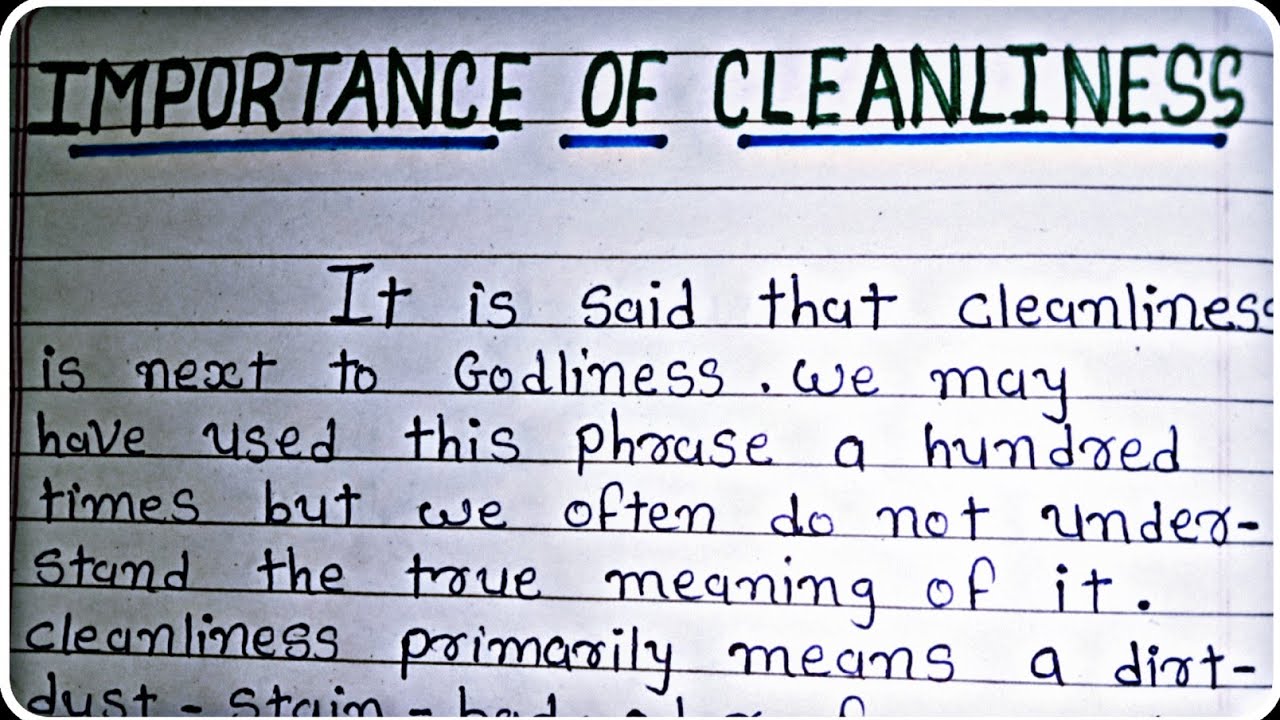 IMPORTANCE OF CLEANLINESS
It is said that cleanliness
is next to Godliness. we may
have used this phrase a hundred
times but we often do not under-
stand the true meaning of it.
cleanliness primarily means a dirt-
dust - stain - bad